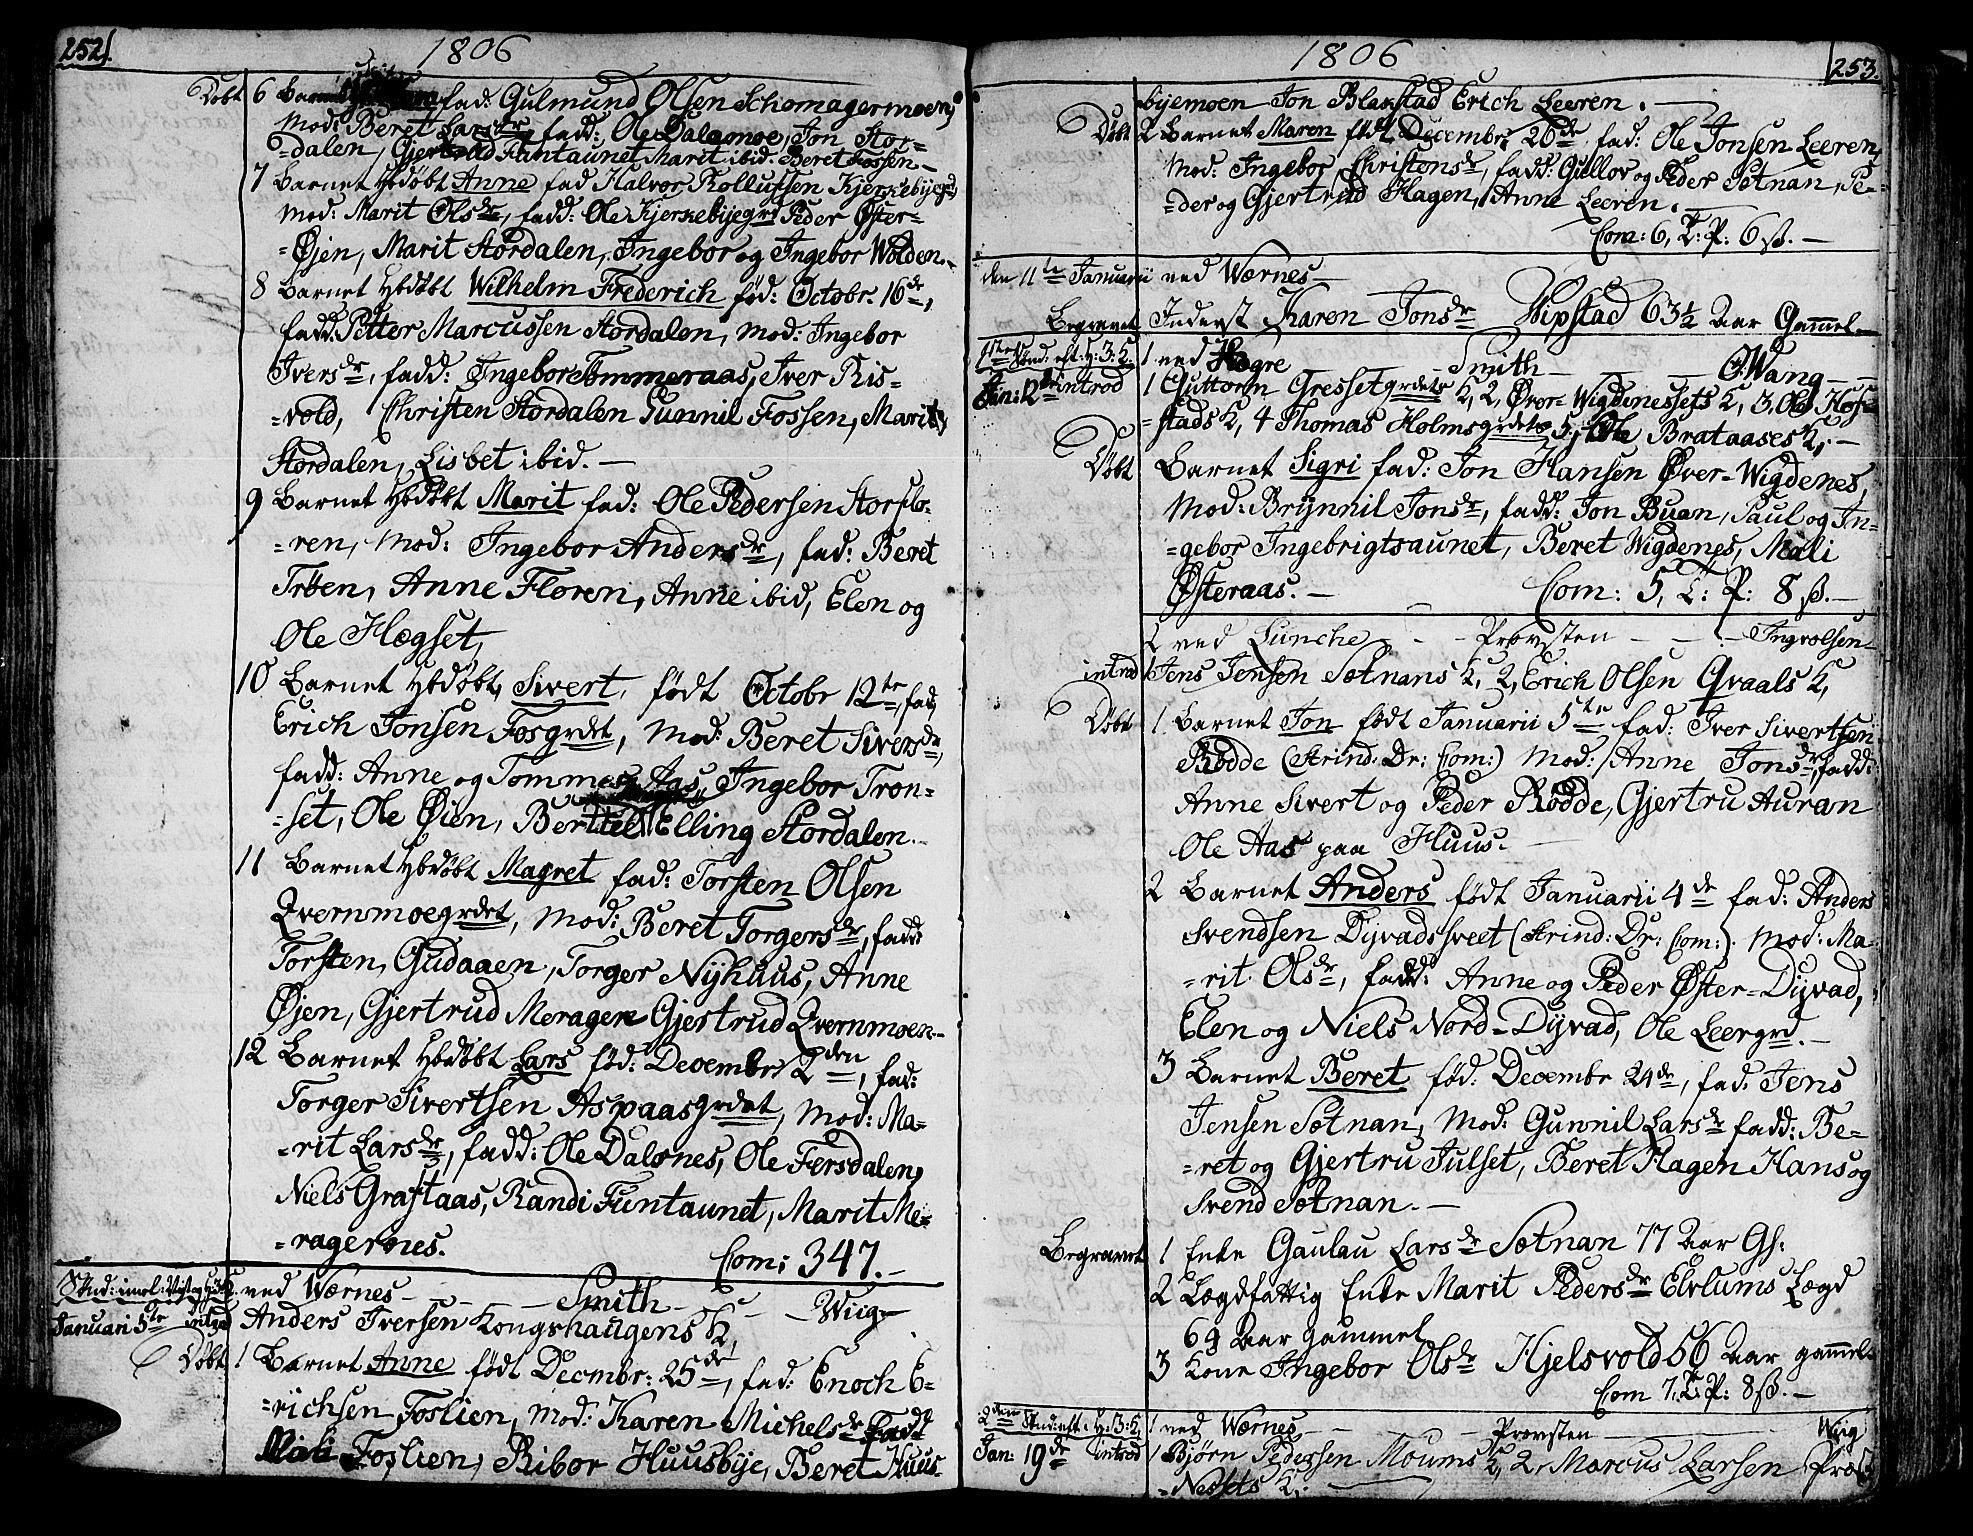 252.
1806
Döbt 6 Barnet fad: Gulmund Olsen Schomagermoen,
Mod: Beret Larsdr, fadd: Ole Dalamoe, Jon Stor-
=dalen, Gjertrud Funtaunet, Marit ibid: Beret Fossen.
7 Barnet Hbdøbt Anne fad Halvor Rolluffsen Kjerkebye
Mod: Marit Olsdr, fadd: Ole Kjerkebyegrd Peder Øster-
=Øjen, Marit Stordalen, Ingebor og Ingebor Wolden.
8 Barnet Hbdøbt Wilhelm Frederich fød: Octobr. 16de,
fadd: Petter Marcussen Stordalen, Mod: Ingebor
Iversdr, fadd: Ingebor Tommeraas, Iver Ris-
=vold, Christen Stordalen Gunnil Fossen, Marit
Stordalen, Lisbet ibid.
9 Barnet Hbdøbt Marit fad: Ole Pedersen Storflo-
=ren, Mod: Ingebor Andersdr, fad: Beret
Trøen, Anne Floren, Anne ibid, Elen og
Ole Hægset,
10 Barnet Hbdøbt, Sivert, født Octobr 12te, fad,
Erich Jonsen Fosgrdet, Mod: Beret Siversdr,
fadd: Anne og Tommes Aas, Ingebor Tron-
=set, Ole Øien, Berttel Elling Stordalen.
11 Barnet Hbdøbt Magret fad: Torsten Olsen
Qvernmoegrdet, Mod: Beret Torgersdr, fadd
Torsten, Gudaaen, Torger Nyhuus, Anne
Øjen, Gjertrud Meragen Gjertrud Qvernmoen.
12 Barnet Hbdøbt Lars fød: Decembr 2den, fad:
Torger Sivertsen Aspaasgrdet, Mod: Ma-
=rit Larsdr, fadd: Ole Dalenes, Ole Fersdalen,
Niels Graftaas, Randi Funtaunet, Marit Me-
=ragernes. Com: 347.
ved Wærnes Smith Wiig
Januari 5te introd Anders Iversen Kongshaugens K,
Döbt 1 Barnet Anne født Decmbr: 25de, fad: Enoch E-
=richsen Foslien, Mod: Karen Michelsdr Fadd
Mali Foslien, Ribor Huusbye, Beret Huus-
1806
253.
byemoen Jon Blanstad Erich Leeren.
Döbt 2 Barnet Maren født Decembr 26de, fad: Ole Jonsen Leeren,
Mod: Ingebor Christensdr, fadd: Gullov og Peder Sotnan, Pe-
=der og Gjertrud Hagen, Anne Leeren.
Com: 6, T: P: 6 ß.
den 11te Januarii ved Wærnes
Begravet Inderst Karen Jonsdr Wipstad 63½ Aar Gammel
1ste Sønd: eft: H: 3: K: 1 ved Hegre Smith O. Wang
Jan: 12te introd 1 Guttorm Gressetgrdets K, 2, Øver-Wigdenessets K, 3, Ole Hof-
=stads K, 4 Thomas Holmsgrdets 5, Ole Brataases K,
Döbt Barnet Sigri fad: Jon Hansen Øver-Wigdenes,
Mod: Brynnil Jonsdr, fadd: Jon Buan, Paul og In-
=gebor Ingebrigtsaunet, Beret Wigdenes, Mali
Østeraas. Com: 5, T: P: 8 ß.
2 ved Lunche Provsten Ingvolsen
introd 1 Jens Jensen Sotnans K, 2, Erich Olsen Qvaals K,
Döbt 1 Barnet Jon født Januarii 5te fad: Iver Sivertsen
Rødde (Strind. Dr: Com:) Mod: Anne Jonsdr, fadd:
Anne Sivert og Peder Rødde, Gjertru Auran
Ole Aas paa Huus.
2 Barnet Anders født Januarii 4de fad: Anders
Svendsen Dyvadssveet (Strind: Dr: Com:). Mod: Ma-
=rit Olsdr, fadd: Anne og Peder Øster-Dyvad,
Elen og Niels Nord-Dyvad, Ole Leergrd.
3 Barnet Beret fød: Decembr 24de, fad: Jens
Jensen Sotnan, Mod: Gunnil Larsdr fadd: Be-
=ret og Gjertru Julset, Beret Hagen Hans og
Svend Sotnan.
Begravet 1 Enke Gaulau Larsdr Sotnan 77 Aar Gl:
2 Lægdfattig Enke Marit Pedersdr Elvlums Lægd
69 Aar gammel
3 Kone Ingebor Olsdr Hjelsvold 56 Aar gammel
Com 7, T: P: 8 ß.
2den Sønd: eft: H: 3: K, 1 ved Wærnes Provsten Wiig
Jan: 19de introd 1 Bjørn Pedersen Moums K, 2, Marcus Larsen Præst
=Nessets K,